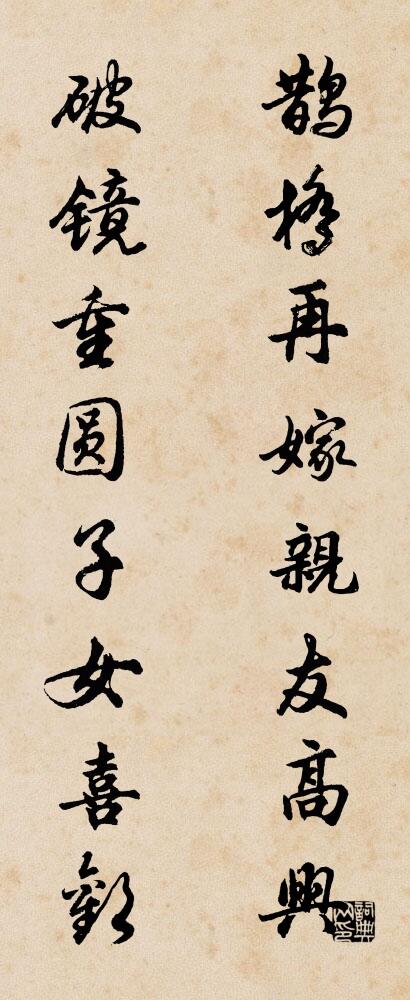 鹊橋再嫁親友高興
破镜重圆子女喜歡